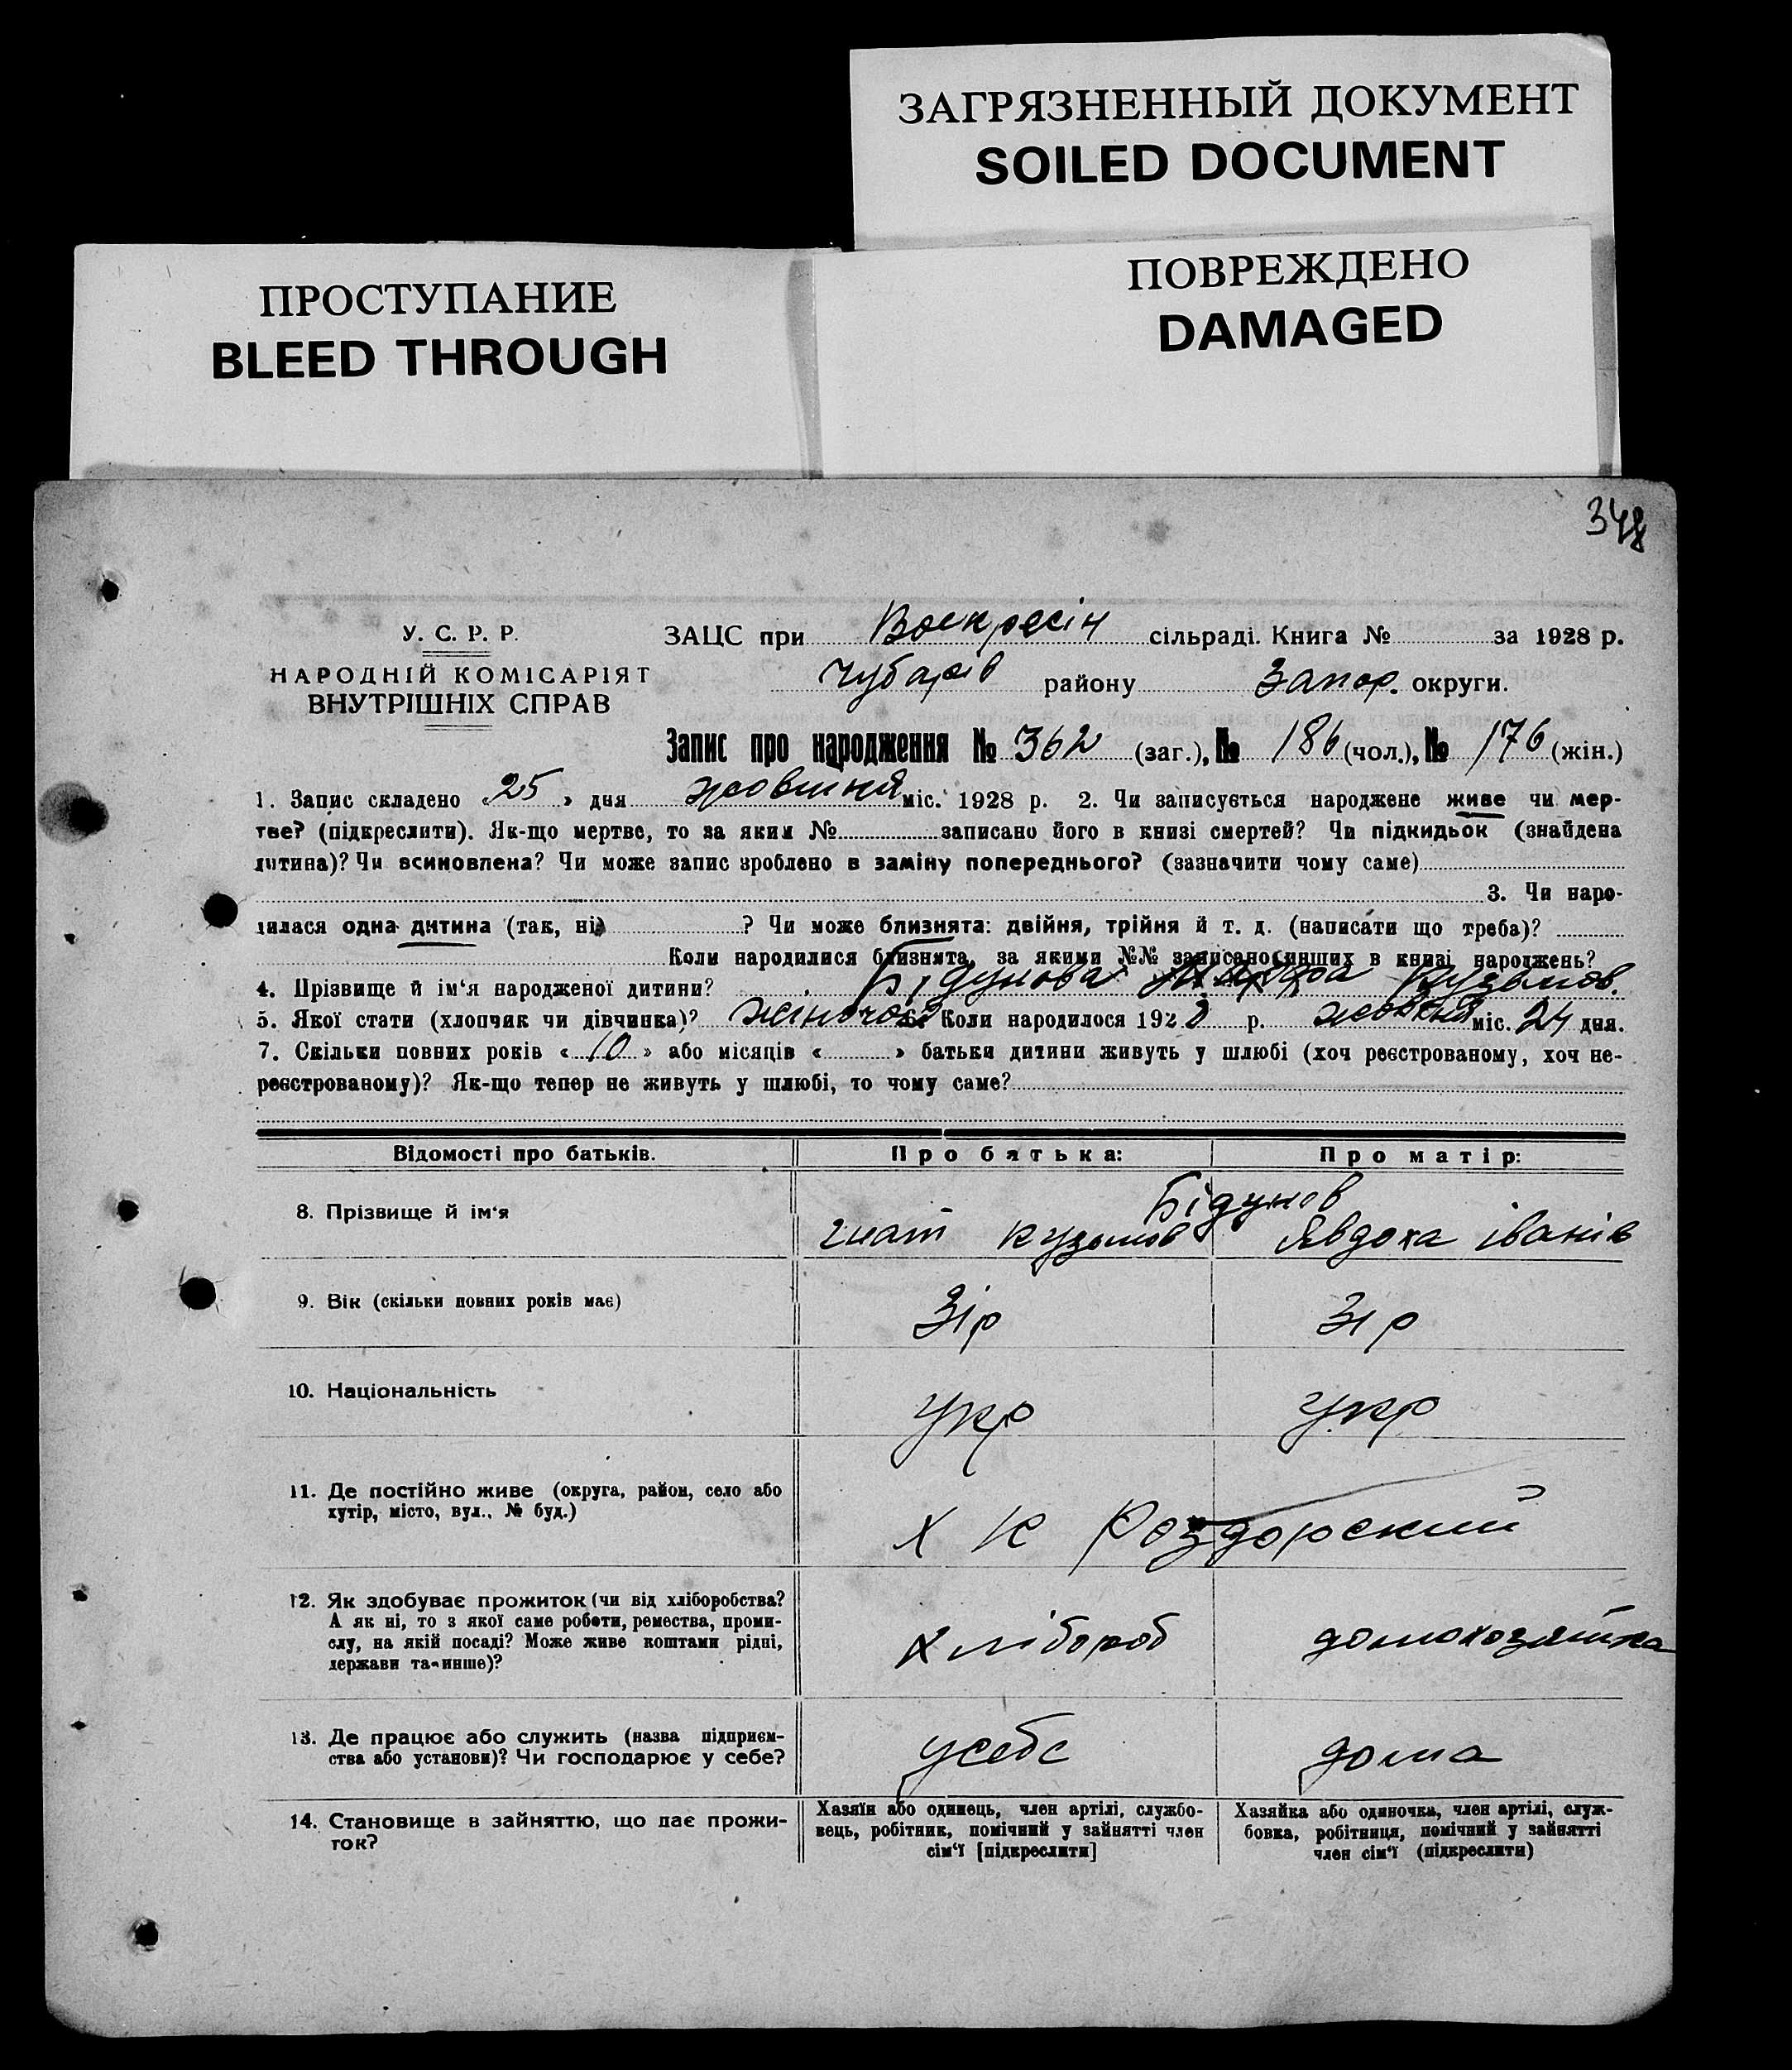 ЗАГРЯЗНЕННЫЙ ДОКУМЕНТ
SOILED DOCUMENT
ПРОСТУПАНИЕ
BLEED THROUGH
ПОВРЕЖДЕНО
DAMAGED
348
У. С. Р. Р.
НАРОДНІЙ КОМІСАРІЯТ
ВНУТРІШНІХ СПРАВ
ЗАЦС при Воскресін сільраді. Книга № за 1928 р.
Чубарів району Запор. округи.
Запис про народження № 362 (заг.), № 186 (чол.), № 176 (жін.)
1. Запис складено «25» дня жовтня міс. 1928 р. 2. Чи записується народжене живе чи мер-
тве? (підкреслити). Як-що мертве, то за яким № записано його в книзі смертей? Чи підкидьок (знайдена
дитина)? Чи всиновлена? Чи може запис зроблено в заміну попереднього? (зазначити чому саме)
3. Чи наро-
дилася одна дитина (так, ні) ? Чи може близнята: двійня, трійня й т. д. (написати що треба)?
Коли народилися близнята, за якими №№ записано инших в книзі народжень?
4. Прізвище й ім‘я народженої дитини? Бідунова Кузьмов.
5. Якої стати (хлопчик чи дівчинка)? жіночої 6. Коли народилося 1928 р. жовтня міс. 24 дня.
7. Скільки повних років «10» або місяців « » батьки дитини живуть у шлюбі (хоч реєстрованому, хоч не-
реєстрованому)? Як-що тепер не живуть у шлюбі, то чому саме?
Відомості про батьків. Про батька: Про матір:
8. Прізвище й ім‘я Бідунов
Гнат Кузьмов Явдоха Іванів
9. Вік (скільки повних років має) 31р 31р
10. Національність Укр Укр
11. Де постійно живе (округа, район, село або
хутір, місто, вул., № буд.) х К Роздорский
12. Як здобуває прожиток (чи від хліборобства?
А як ні, то з якої саме роботи, ремества, проми-
слу, на якій посаді? Може живе коштами рідні,
держави та-инше)? хлібороб домохозяйка
13. Де працює або служить (назва підприєм-
ства або установи)? Чи господарює у себе? усебе дома
14. Становище в зайняттю, що дає прожи-
ток?
Хазяїн або одинець, член артілі, службо-
вець, робітник, помічний у зайнятті член
сім‘ї [підкреслити]
Хазяйка або одиночка, член артілі, служ-
бовка, робітниця, помічний у зайнятті
член сім‘ї (підкреслити)